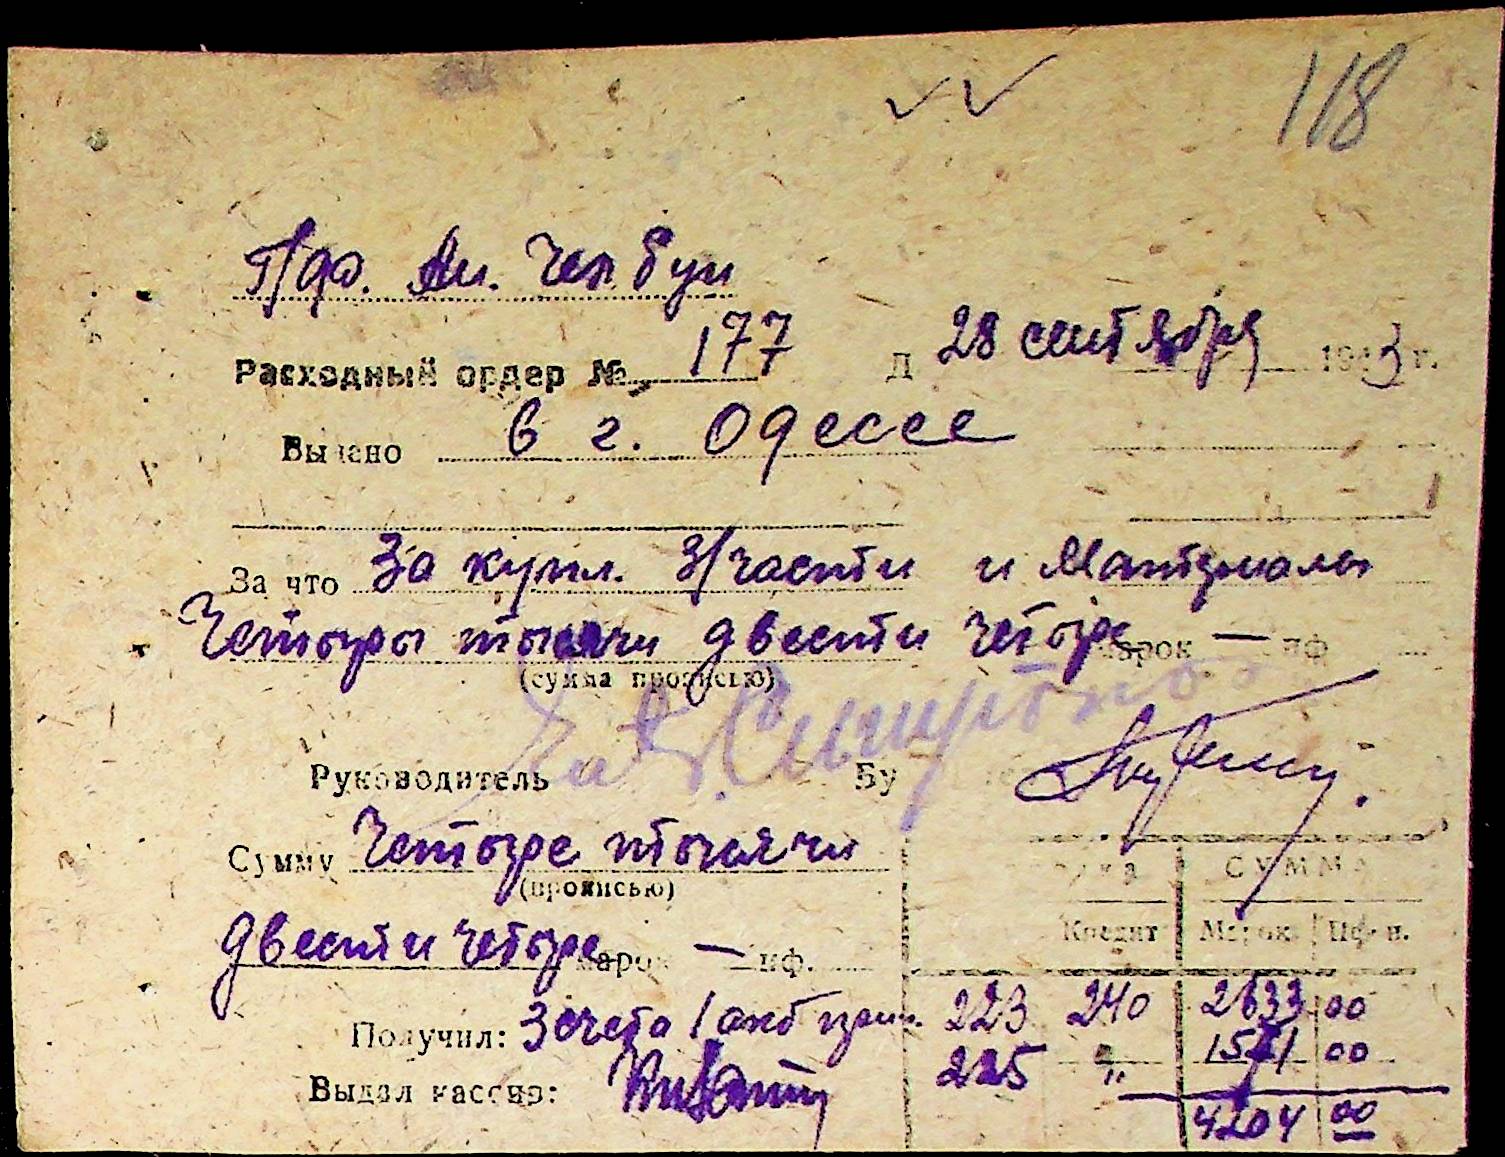 118
Расходный ордер № 177 Д 28 сентября 1943 г.
Выдано в г. Одессе
За что За купл. З/части и материалы
Четыры тысячи двести четыре марок — пф
(сумма прописью)
Руководитель Бу
Сумму Четыре тысячи
(прописью)
двести четыре марок — пф.
СУММА
Кредит Марок Пфен.
Получил: 3 счета 1 223 240 2633 00
225 " 1571 00
Выдал кассир:
4204 00